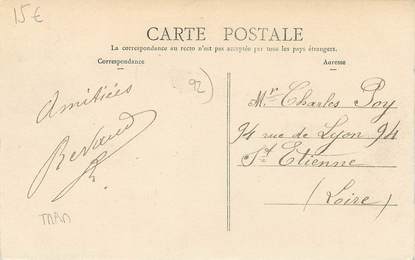 15€
CARTE POSTALE
La correspondance au recto n'est pas acceptée par tous les pays étrangers.
Correspondance
Adresse
92
Amitiées
Mr Charles Poy
94 rue de Lyon 94
St Etienne
(Loire)